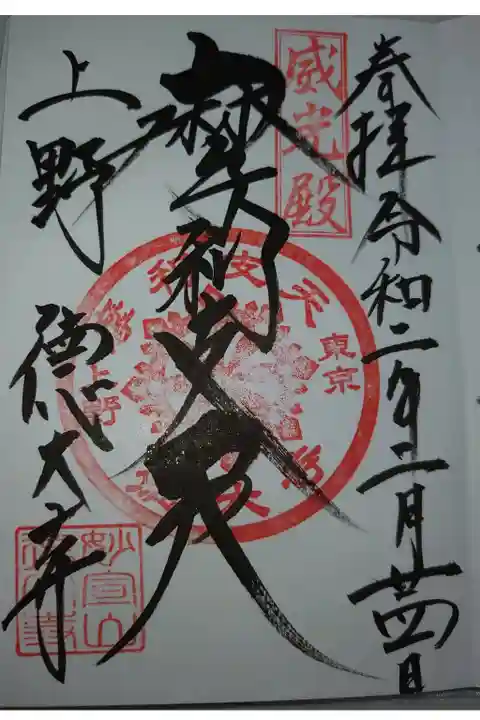 奉拝 令和二年二月廿四日
威光殿
摩利支天
上野 徳大寺
東京
上野
妙宣山